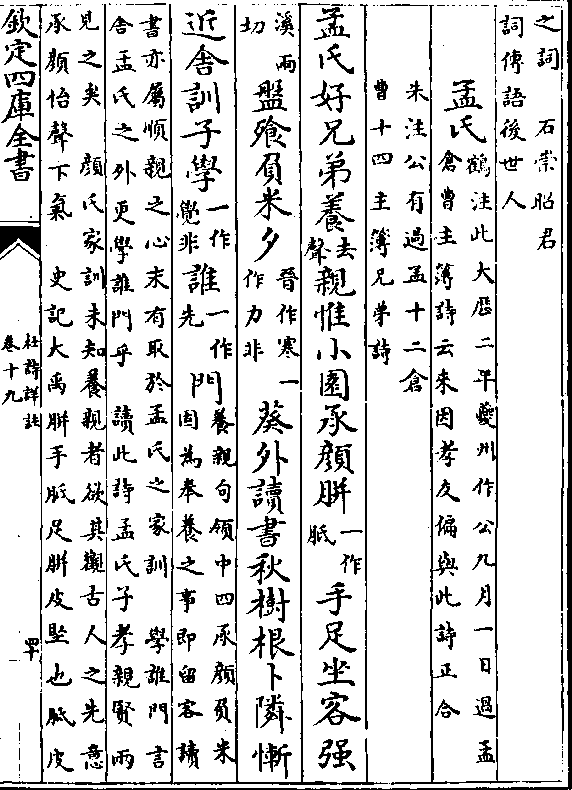 之詞　石崇昭君
詞傳語後世人
孟氏
鶴注此大厯二年夔州作公九月一日過孟
倉曹主簿詩云來因孝友偏與此詩正合
朱注公有過孟十二倉
曹十四主簿兄弟詩
孟氏好兄弟養去聲親惟小園承顔胼一作胝手足坐客强
溪兩切盤飱負米夕晉作寒一作力非葵外讀書秋樹根卜隣慚
近舍訓子學一作覺非誰一作先門養親句領中四承顔負米
因為奉養之事即留客讀
書亦屬順親之心末有取於孟氏之家訓　學誰門言
舍孟氏之外更學誰門乎　讀此詩孟氏子孝親賢兩
見之矣　顔氏家訓未知養親者欲其觀古人之先意
承顔怡聲下氣　史記大禹胼手胝足胼皮堅也胝皮
欽定四庫全書
杜詩詳註
卷十九
四十